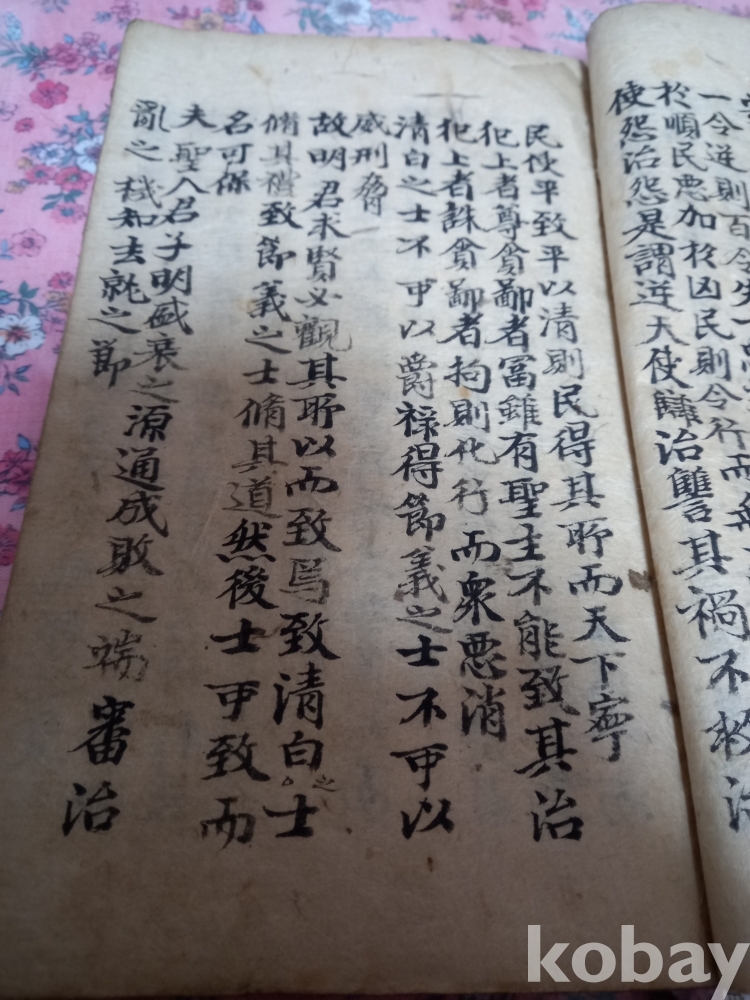 一令逆則百令失一惡
於順民惡加於凶民則令行而無
使怨治怨是謂逆天使讎治讐其禍不救治
民使平致平以清則民得其所而天下寧
犯上者尊貪鄙者富雖有聖主不能致其治
犯上者誅貪鄙者拘則化行而衆惡消
清白之士不可以爵祿得節義之士不可以
威刑脅
故明君求賢必觀其所以而致焉致清白之士
脩其禮致節義之士脩其道然後士可致而
名可保
夫聖人君子明盛衰之源通成敗之端審治
亂之機知去就之節
kobay